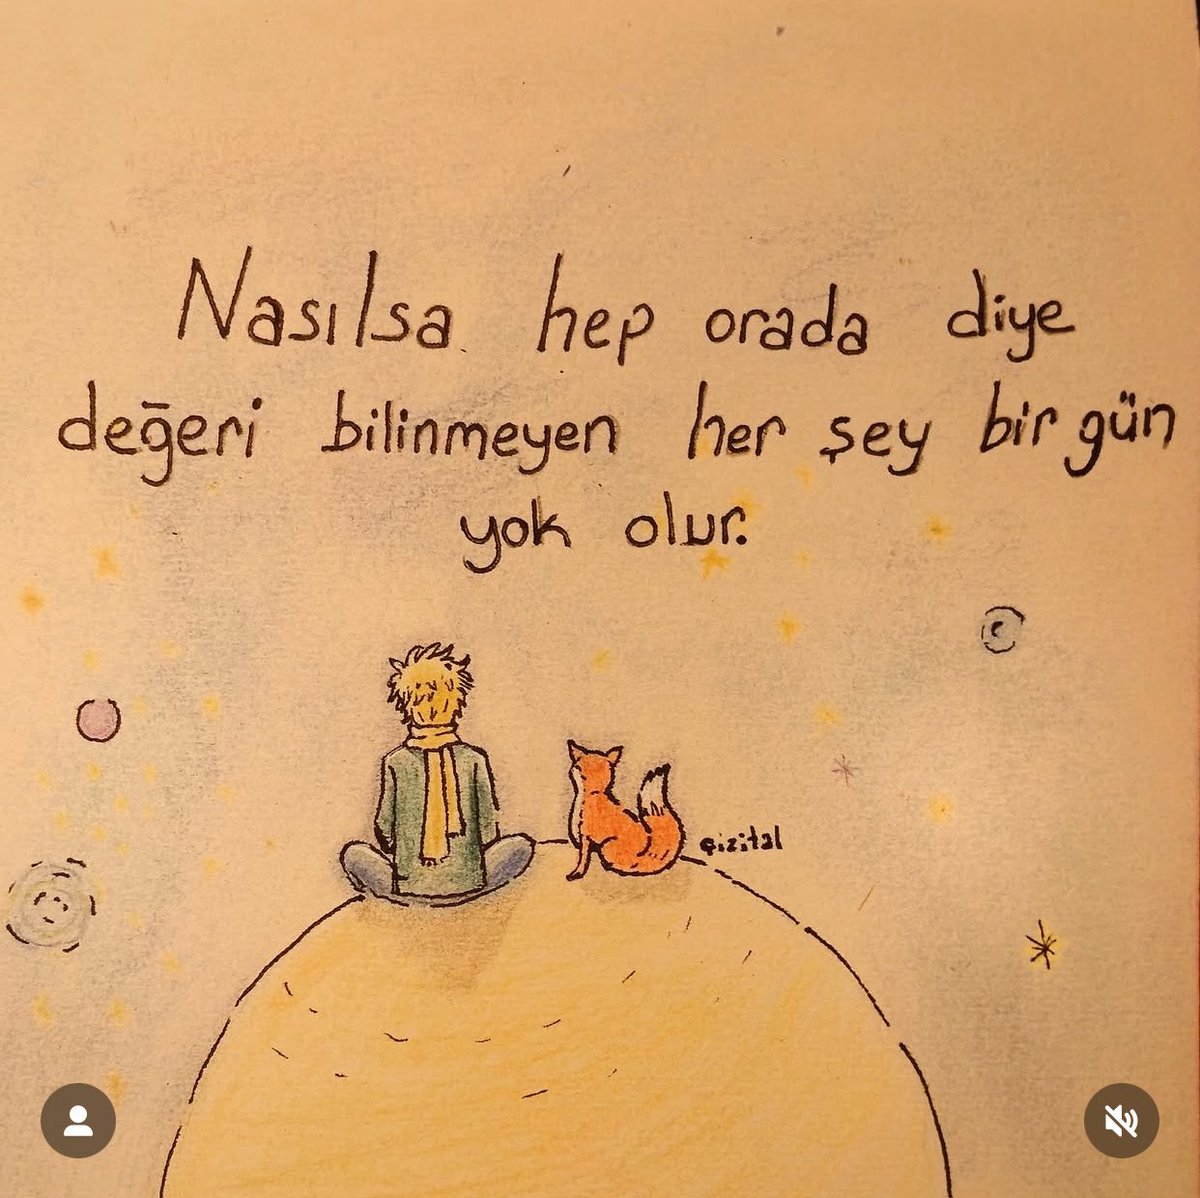 Nasılsa hep orada diye
değeri bilinmeyen her şey bir gün
yok olur.
çizital